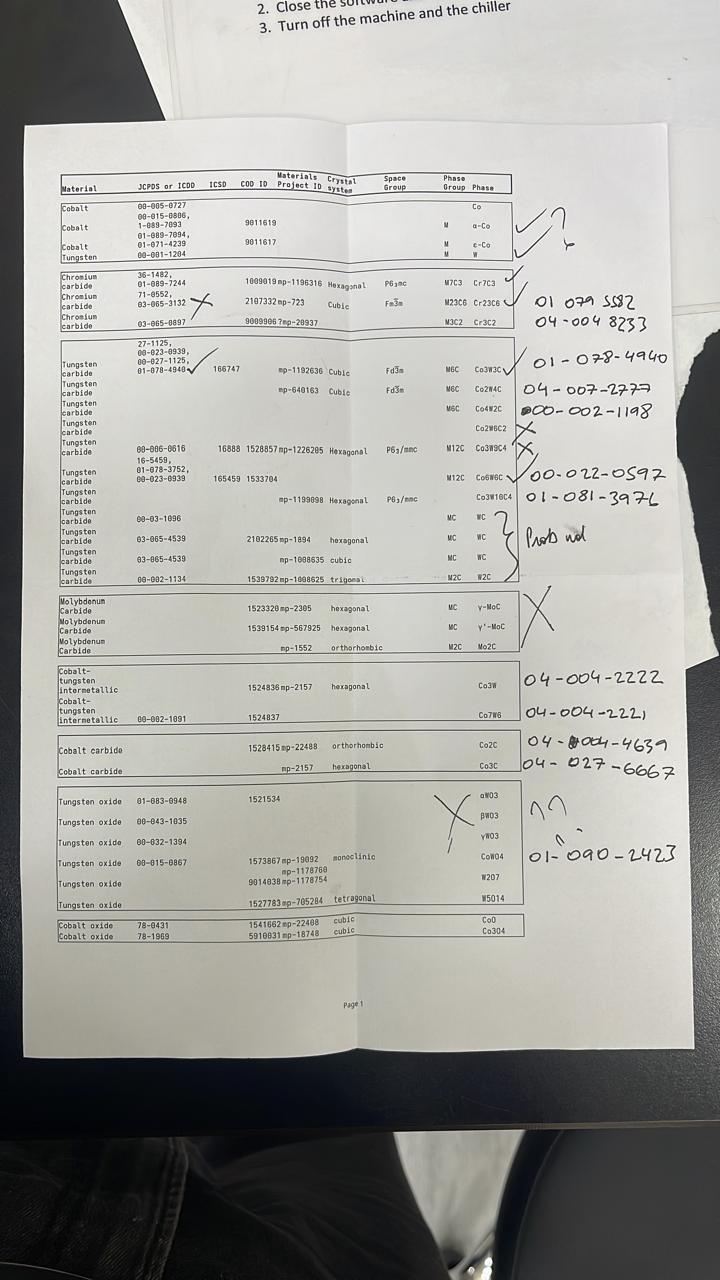 2. Close the software
3. Turn off the machine and the chiller
Material JCPDS or ICDD ICSD COD ID Materials Project ID Crystal system Space Group Phase Group Phase
Cobalt 00-005-0727 Co
00-015-0806,
Cobalt 1-089-7093 9011619 M α-Co
01-089-7094,
Cobalt 01-071-4239 9011617 M ε-Co
Tungsten 00-001-1204 M W
?
Chromium carbide 36-1482, 01-089-7244 1009019 mp-1196316 Hexagonal P6₃mc M7C3 Cr7C3
Chromium carbide 71-0552, 03-065-3132 2107332 mp-723 Cubic Fm3̅m M23C6 Cr23C6 01 079 5582
Chromium carbide 03-065-0897 9009906 ?mp-20937 M3C2 Cr3C2 04-004 8233
27-1125,
00-023-0939,
00-027-1125,
Tungsten carbide 01-078-4940 166747 mp-1192636 Cubic Fd3̅m M6C Co3W3C 01-078-4940
Tungsten carbide mp-640163 Cubic Fd3̅m M6C Co2W4C 04-007-2777
Tungsten carbide M6C Co4W2C 00-002-1198
Tungsten carbide Co2W6C2
Tungsten carbide 00-006-0616 16888 1528857 mp-1226205 Hexagonal P6₃/mmc M12C Co3W9C4
16-5459,
01-078-3752,
Tungsten carbide 00-023-0939 165459 1533704 M12C Co6W6C 00-022-0597
Tungsten carbide mp-1199098 Hexagonal P6₃/mmc Co3W10C4 01-081-3976
Tungsten carbide 00-03-1096 MC WC
Tungsten carbide 03-065-4539 2102265 mp-1894 hexagonal MC WC Prob not
Tungsten carbide 03-065-4539 mp-1008635 cubic MC WC
Tungsten carbide 00-002-1134 1539792 mp-1008625 trigonal M2C W2C
Molybdenum Carbide 1523320 mp-2305 hexagonal MC γ-MoC
Molybdenum Carbide 1539154 mp-567925 hexagonal MC γ'-MoC
Molybdenum Carbide mp-1552 orthorhombic M2C Mo2C
Cobalt-tungsten intermetallic 1524836 mp-2157 hexagonal Co3W 04-004-2222
Cobalt-tungsten intermetallic 00-002-1091 1524837 Co7W6 04-004-2221
Cobalt carbide 1528415 mp-22488 orthorhombic Co2C 04-004-4639
Cobalt carbide mp-2157 hexagonal Co3C 04-027-6667
Tungsten oxide 01-083-0948 1521534 αWO3
Tungsten oxide 00-043-1035 βWO3
Tungsten oxide 00-032-1394 γWO3
Tungsten oxide 00-015-0867 1573867 mp-19092 monoclinic CoWO4 01-090-2423
mp-1178760
Tungsten oxide 9014038 mp-1178754 W2O7
Tungsten oxide 1527783 mp-705284 tetragonal W5O14
Cobalt oxide 78-0431 1541662 mp-22408 cubic CoO
Cobalt oxide 78-1969 5910031 mp-18748 cubic Co3O4
Page 1